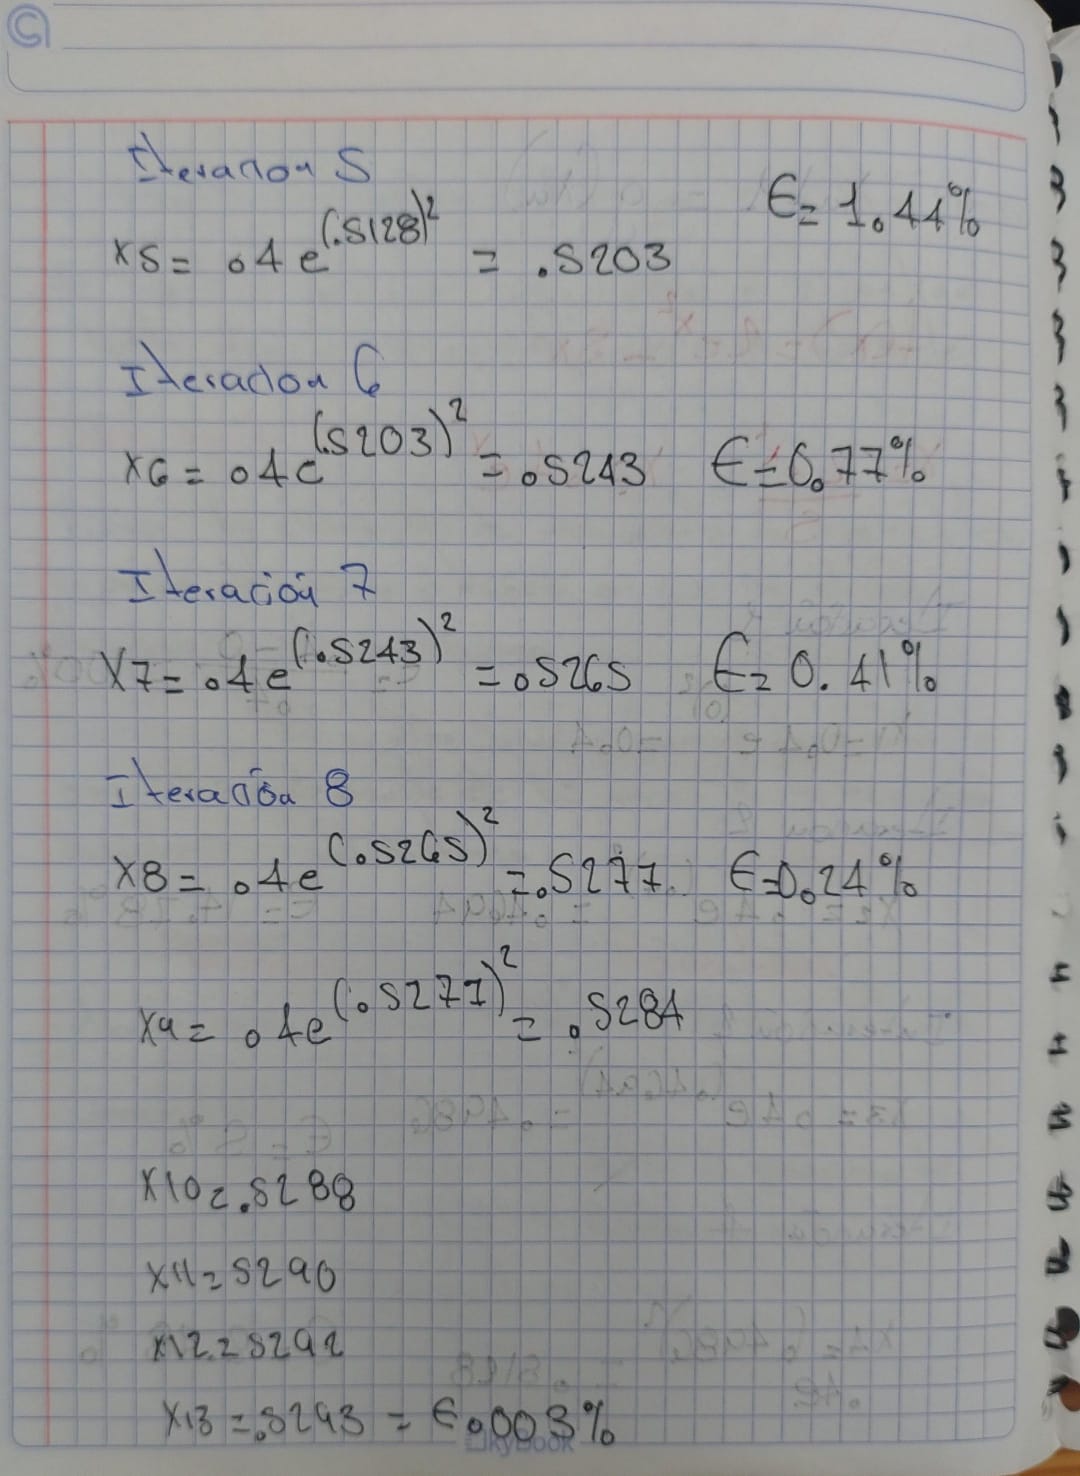 Iteracion 5
E= 1.44%
x5= .4e^(.5128)^2 = .5203
Iteracion 6
x6= .4e^(.5203)^2 =.5243 E=0.77%
Iteración 7
x7=.4e^(.5243)^2 =.5265 E= 0.41%
Iteración 8
x8= .4e^(.5265)^2 =.5277 E=0.24%
x9= .4e^(.5277)^2 = .5284
x10=.5288
x11=5290
x12=5292
x13=.5293 = E.003%
SkyBook